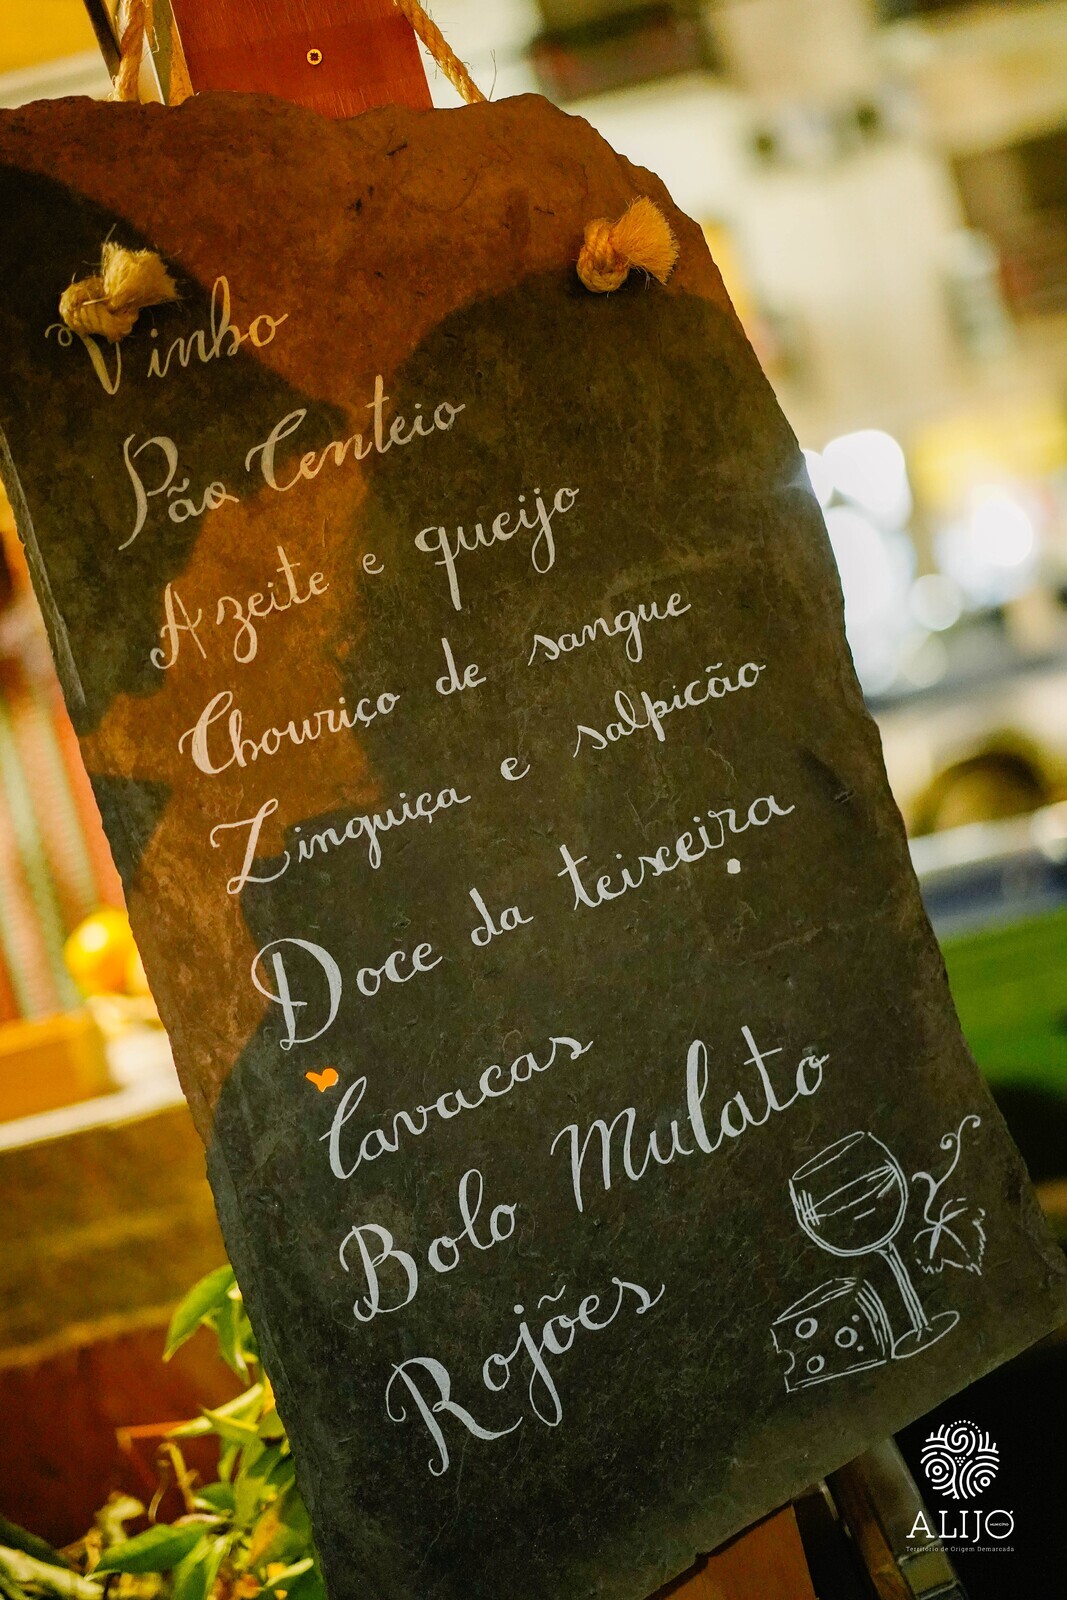 Vinho
Pão Centeio
Azeite e queijo
Chouriço de sangue
Linguiça e salpicão
Doce da teixeira
Cavacas
Bolo Mulato
Rojões
ALIJÓ
MUNICÍPIO
Território de Origem Demarcada